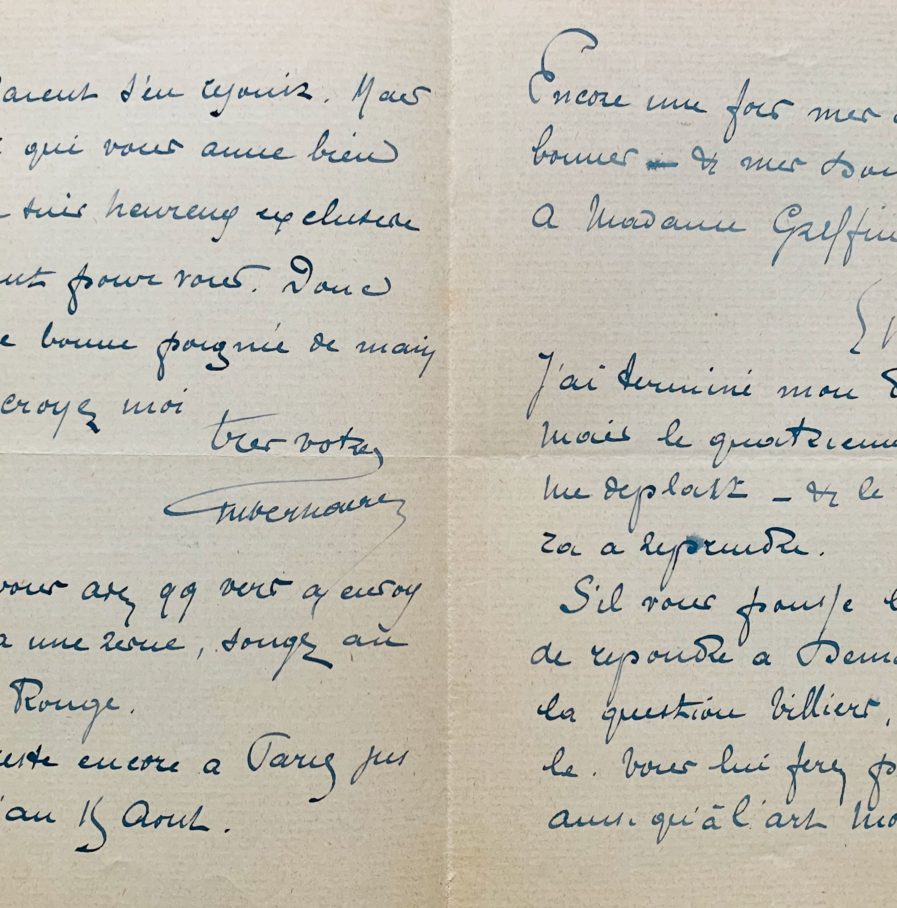 s'en rejouir. Mais
qui vous aime bien
suis heureux exclusive
pour vous. Donc
bonne poignée de main
croyez moi
tres votre
vous avez qq vers a envoy
a une revue, songez au
Rouge.
encore a Paris jus
au 15 Aout.
Encore une fois mes
bonnes - & mes
A Madame Griffin
J'ai terminé mon
Mais le quatrieme
me deplait - & le
ra a reprendre.
S'il vous pousse
de repondre a
la question Villiers,
le. Vous lui ferez
ainsi qu'à l'art